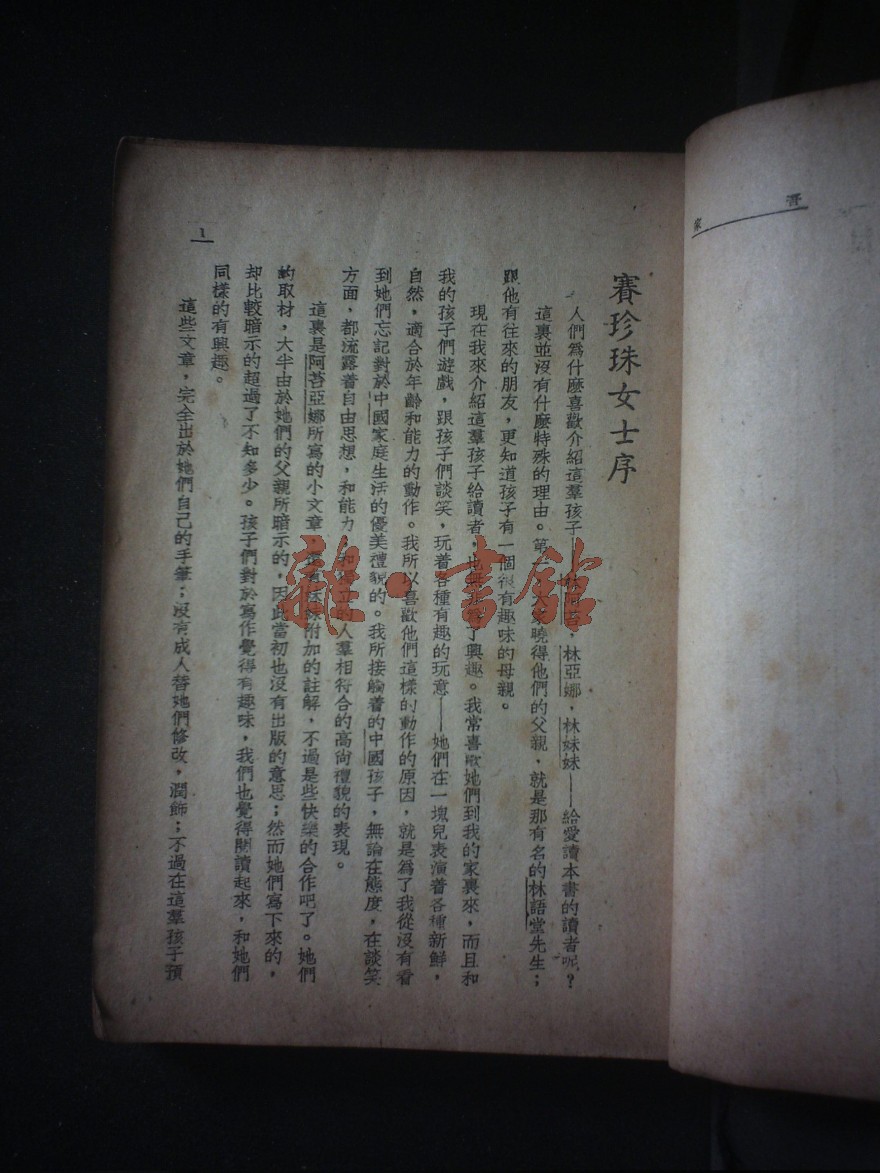 吾家
賽珍珠女士序
人們為什麽喜歡介紹這羣孩子——林阿苔，林亞娜，林妹妹——給愛讀本書的讀者呢？
這裏並沒有什麽特殊的理由。第一，大家曉得他們的父親，就是那有名的林語堂先生；
跟他有往來的朋友，更知道孩子有一個很有趣味的母親。
現在我來介紹這羣孩子給讀者，也無非為了興趣。我常喜歡她們到我的家裏來，而且和
我的孩子們遊戲，跟孩子們談笑，玩着各種有趣的玩意——她們在一塊兒表演着各種新鮮，
自然，適合於年齡和能力的動作。我所以喜歡他們這樣的動作的原因，就是為了我從沒有看
到她們忘記對於中國家庭生活的優美禮貌的。我所接觸着的中國孩子，無論在態度，在談笑
方面，都流露着自由思想，和能力，和獨立的人羣相符合的高尚禮貌的表現。
這裏是阿苔亞娜所寫的小文章，還有妹妹附加的註解，不過是些快樂的合作吧了。她們
的取材，大半由於她們的父親所暗示的，因此當初也沒有出版的意思；然而她們寫下來的，
却比較暗示的超過了不知多少。孩子們對於寫作覺得有趣味，我們也覺得閱讀起來，和她們
同樣的有興趣。
這些文章，完全出於她們自己的手筆；沒有成人替她們修改，潤飾；不過在這羣孩子預
1
雜·書館